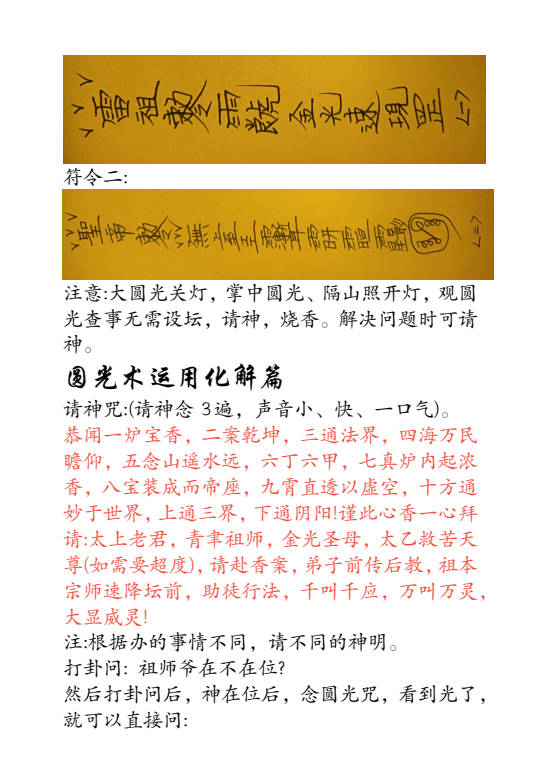 雷祖敕令雨 金光速現罡
(一)
符令二:
聖帝敕令
(二)
注意:大圆光关灯，掌中圆光、隔山照开灯，观圆
光查事无需设坛，请神，烧香。解决问题时可请
神。
圆光术运用化解篇
请神咒:(请神念 3遍，声音小、快、一口气)。
恭闻一炉宝香，二案乾坤，三通法界，四海万民
瞻仰，五念山遥水远，六丁六甲，七真炉内起浓
香，八宝装成而帝座，九霄直透以虚空，十方通
妙于世界，上通三界，下通阴阳!谨此心香一心拜
请:太上老君，青聿祖师，金光圣母，太乙救苦天
尊(如需要超度)，请赴香案，弟子前传后教，祖本
宗师速降坛前，助徒行法，千叫千应，万叫万灵，
大显威灵!
注:根据办的事情不同，请不同的神明。
打卦问: 祖师爷在不在位?
然后打卦问后，神在位后，念圆光咒，看到光了，
就可以直接问: